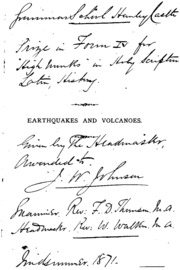 Grammar School Hanley Castle
Prize in Form IV for
High Marks in Holy Scripture
Latin, History
EARTHQUAKES AND VOLCANOES.
Given by The Headmaster,
Awarded to
J. W. Johnson
Examiner, Rev. F. D. Thomson M.A.
Headmaster, Rev. W. Walker M.A.
Midsummer, 1871.